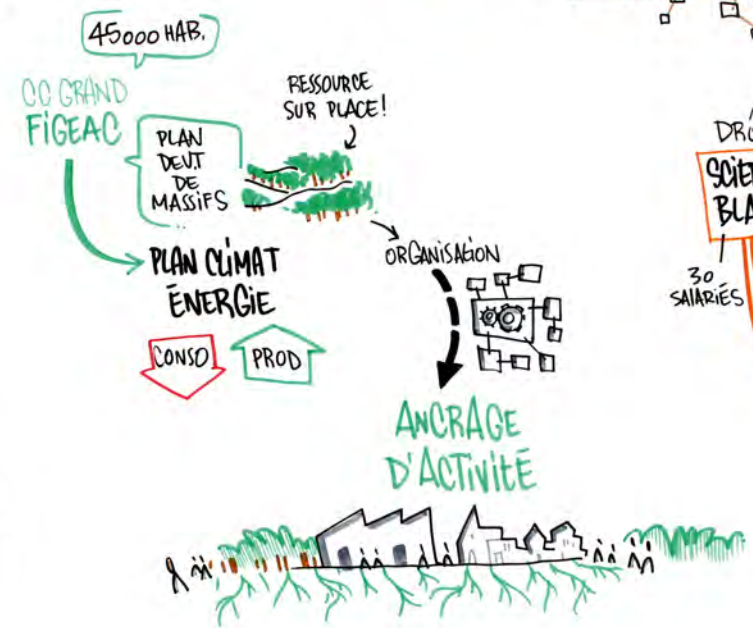 45000 HAB.
CC GRAND
FIGEAC
PLAN
DEVT
DE
MASSIFS
RESSOURCE
SUR PLACE!
PLAN CLIMAT
ÉNERGIE
CONSO
PROD
ORGANISATION
ANCRAGE
D'ACTIVITÉ
30
SALARIÉS